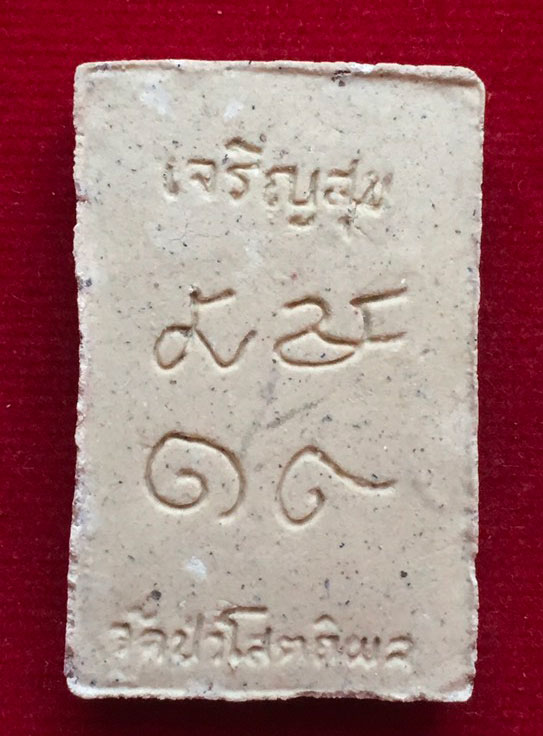 เจริญสุข
๑๙
วัดป่าโสตถิผล